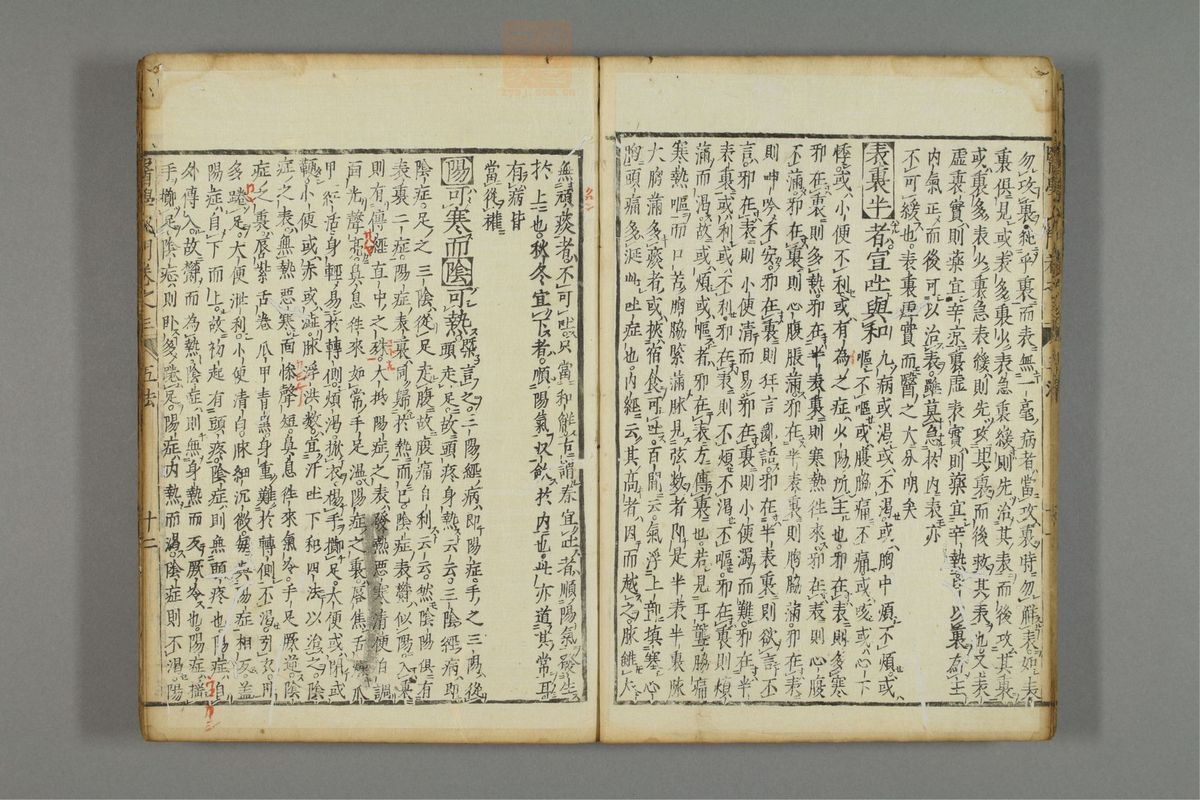 勿攻裏純乎裏而表無一毫病者當攻裏時勿觧表如表
裏俱見或裏多表少表急裏緩則先治其表而後攻其裏
或裏多表少裏急表緩則先攻其裏而後救其表也又表
虛裏實則藥宜辛凉裏虛表實則藥宜辛熱以裏為主
内氣正而後可以治表雖莫急於内表亦
不可緩也表裏虛實而醫之大分明矣
表裏半者宜吐與和
凡病或渴或不渴或胸中煩不煩或
嘔不嘔或腹脇痛不痛或咳或心下
悸或小便不利或有為之症火陽所主也邪在表則多寒
邪在裏則多熱邪在半表裏則寒熱徃來邪在表則心腹
不滿邪在裏則心腹脹滿邪在半表裏則胸脇滿邪在表
則呻吟不安邪在裏則狂言亂語邪在半表裏則欲言不
言邪在表則小便清而易邪在裏則小便濁而難邪在半
表裏或利或不利邪在表則不煩不渴不嘔邪在裏則煩
滿而渴或煩或嘔者邪在表方傳裏也若見耳聾脇痛
寒熱嘔而口苦胸脇緊滿脉見弦数者即是半表半裏脉
大胸滿多痰者或挾宿食可吐百問云氣浮上部填塞心
胸頭痛多涎此吐症也内經云其高者因而越之脉雖大
無頑痰者不可吐只當和觧古謂春宜吐者順陽氣發生
於上也秋冬宜下者順陽氣収歛於内也此亦道其常耳
有病皆
當從權
陽可寒而陰可熱
張言之三陽經病即陽症手之三陽從
頭走足故頭疼身熱云云三陰經病即
陰症足之三陰從足走腹故腹痛自利云云然陰陽俱有
表裏二症陽症表裏同歸於熱而已陰症表
則有傳經直中之殊大抵陽症之表發熱惡寒清便自調
面光聲亮鼻息徃來如常手足温陽症之裏唇焦舌爪
甲紅活身輕易於轉側煩渴掀衣揚手擲足大便或閉或
鞕小便或赤或澁脉浮洪数宜汗吐下和四法以治之陰
症之表無熱惡寒面慘聲短鼻息徃來氣冷手足厥逆陰
症之裏唇紫舌卷爪甲青黑身重難於轉側不渴引衣
多踡足大便泄利小便清白脉細沉微每與陽症相反盖
陽症自下而上故初起有頭疼陰症則無頭疼也陽症自
外傳入故而為熱陰症則無身熱而反厥冷也陽症揚
手擲足陰症則卧多踡足陽症内熱而渴陰症則不渴陽
卷之三 五法 十二